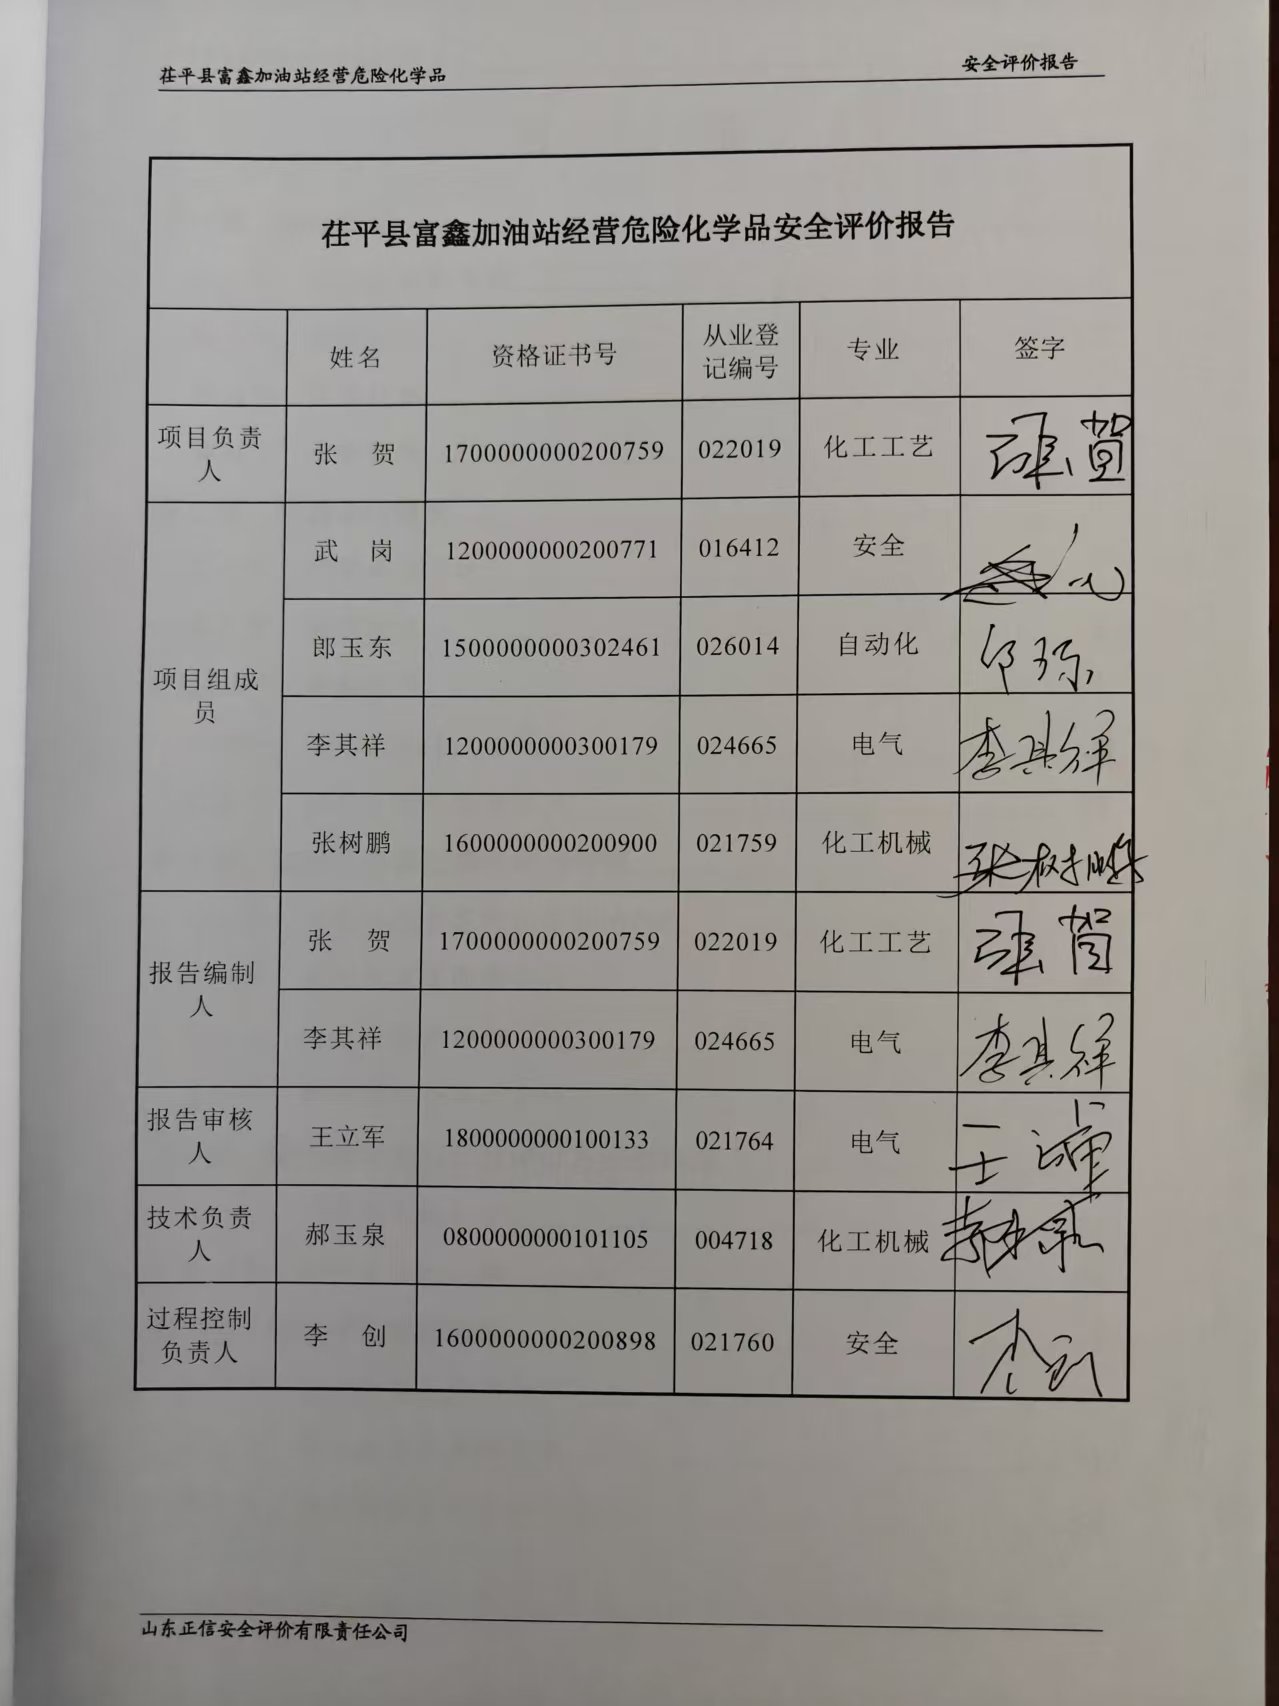 茌平县富鑫加油站经营危险化学品 安全评价报告
茌平县富鑫加油站经营危险化学品安全评价报告
姓名 资格证书号 从业登记编号 专业 签字
项目负责人 张 贺 1700000000200759 022019 化工工艺 张贺
项目组成员 武 岗 1200000000200771 016412 安全
郎玉东 1500000000302461 026014 自动化
李其祥 1200000000300179 024665 电气 李其祥
张树鹏 1600000000200900 021759 化工机械 张树鹏
报告编制人 张 贺 1700000000200759 022019 化工工艺 张贺
李其祥 1200000000300179 024665 电气 李其祥
报告审核人 王立军 1800000000100133 021764 电气
技术负责人 郝玉泉 0800000000101105 004718 化工机械
过程控制负责人 李 创 1600000000200898 021760 安全 李创
山东正信安全评价有限责任公司